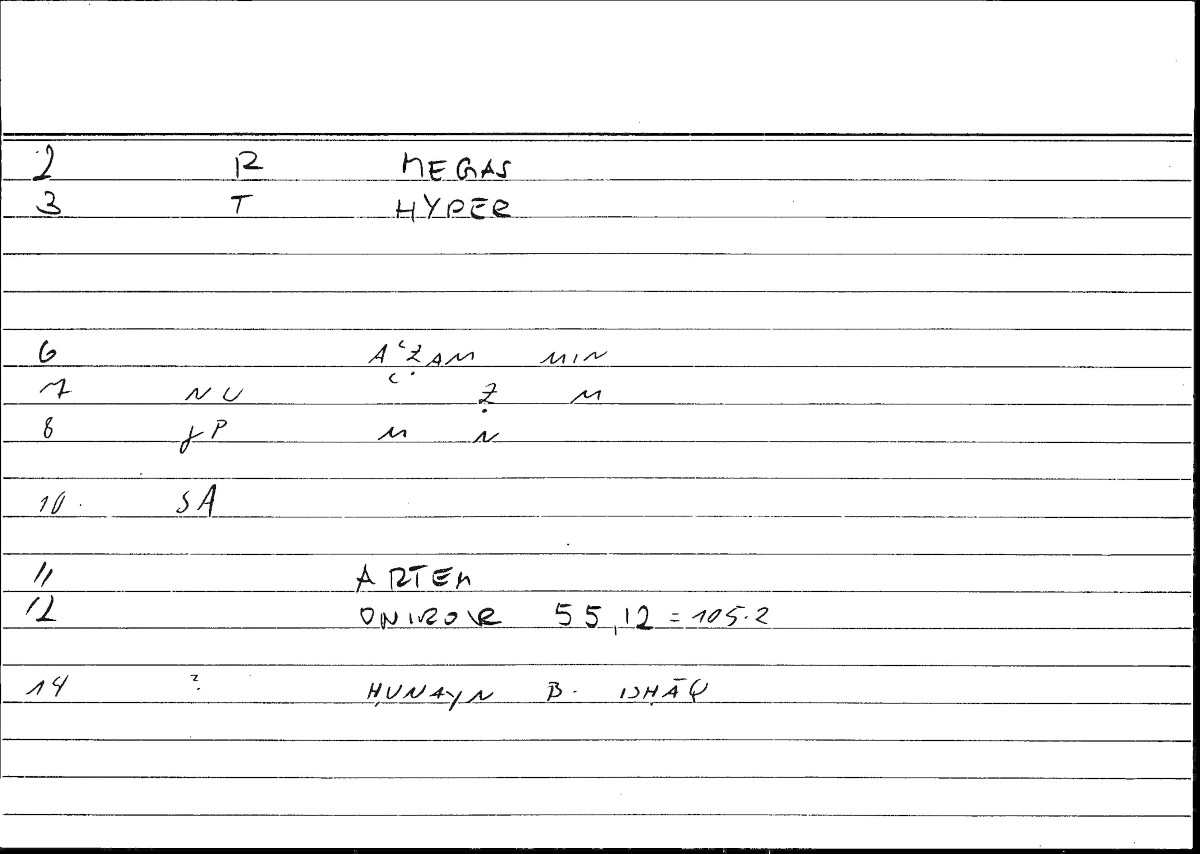 2 R MEGAS
3 T HYPER
6 AʿẒAM MIN
7 NU ʿ Ẓ M
8 JP M N
10 SA
11 ARTEM
12 ONIROK 55,12 = 105.2
14 ? ḤUNAYN B. ISḤĀQ